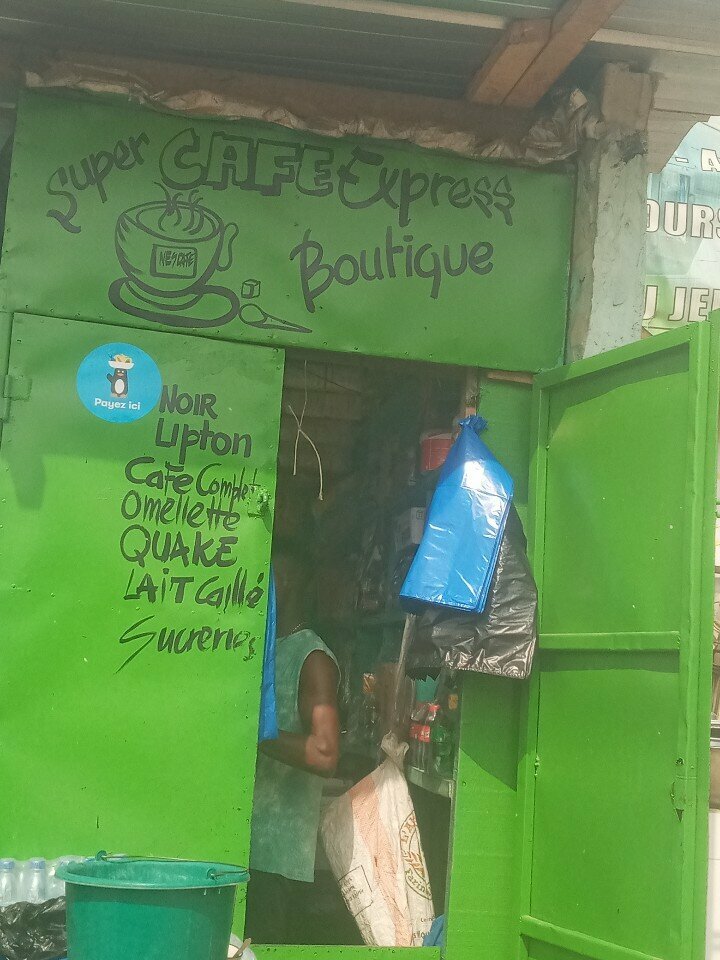 Super CAFE Express
NESCAFE
Boutique
Payez ici
NOIR
Lipton
CaFe Complet
Omellette
QUAKE
LAIT Caillé
Sucreries
OURS